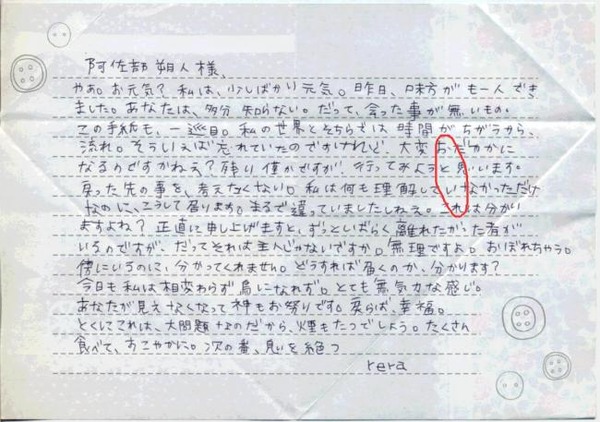 阿佐部 朔人 様、
やあ。お元気? 私は、少しばかり元気。昨日、味方がも一人でき
ました。あなたは、多分知らない。だって、会った事が無いもの。
この手紙も、一巡目。私の世界とそちらでは時間がちがうから、
流れ。そういえば忘れていたのですけれど、大変おだやかに
なるのですかねえ?残り僅かですが、行ってみようと思います。
戻った先の事を、考えたくない。私は何も理解していなかっただけ
なのに、こうして居ります。まるで違っていましたしねえ。これは分かり
ますよね?正直に申し上げますと、ずっとしばらく離れたかった者が
いるのですが、だってそれは主人じゃないですか。無理ですよ。おぼれちゃう。
傍にいるのに、分かってくれません。どうすれば届くのか、分かります?
今日も私は相変わらず鳥になれず。とても無気力な感じ。
あなたが見えなくなって神もお祭りです。戻らば、幸福。
とくしてこれは、大問題なのだから、煙もたつでしょう。たくさん
食べて、おこやかに。次の番、息を絶つ
rera